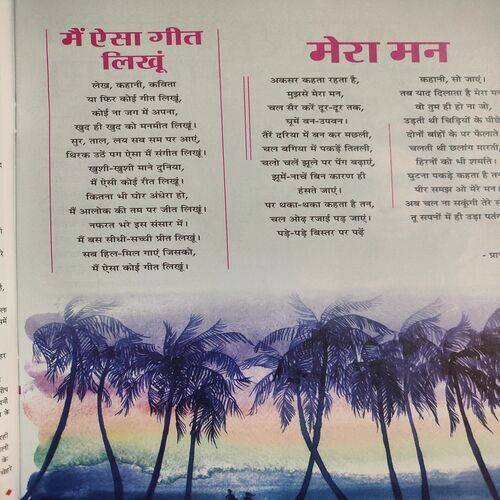 मैं ऐसा गीत
लिखूं
लेख, कहानी, कविता
या फिर कोई गीत लिखूं,
कोई ना जग में अपना,
खुद ही खुद को मनमीत लिखूं।
सुर, ताल, लय सब सम पर आएं,
थिरक उठें पग ऐसा मैं संगीत लिखूं।
खुशी-खुशी माने दुनिया,
मैं ऐसी कोई रीत लिखूं।
कितना भी घोर अंधेरा हो,
मैं आलोक की तम पर जीत लिखूं।
नफरत भरे इस संसार में।
मैं बस सीधी-सच्ची प्रीत लिखूं।
सब हिल-मिल गाएं जिसको,
मैं ऐसा कोई गीत लिखूं।
मेरा मन
अकसर कहता रहता है,
मुझसे मेरा मन,
चल सैर करें दूर-दूर तक,
घूमें वन-उपवन।
तैरें दरिया में बन कर मछली,
चल बगिया में पकड़ें तितली,
चलो चलें झूले पर पेंग बढ़ाएं,
झूमें-नाचें बिन कारण ही
हंसते जाएं।
पर थका-थका कहता है तन,
चल ओढ़ रजाई पड़ जाएं।
पड़े-पड़े बिस्तर पर पढ़ें
कहानी, सो जाएं।
तब याद दिलाता है मेरा मन
वो तुम ही हो ना जो,
उड़ती थी चिड़ियों के पीछे
दोनों बांहों के पर फैलाते
चलती थी छलांग मारती,
हिरनों को भी शर्माते।
घुटना पकड़े कहता है तन
पीर समझ ओ मेरे मन।
अब चल ना सकूंगी तेरे स
तू सपनों में ही उड़ा पतंग